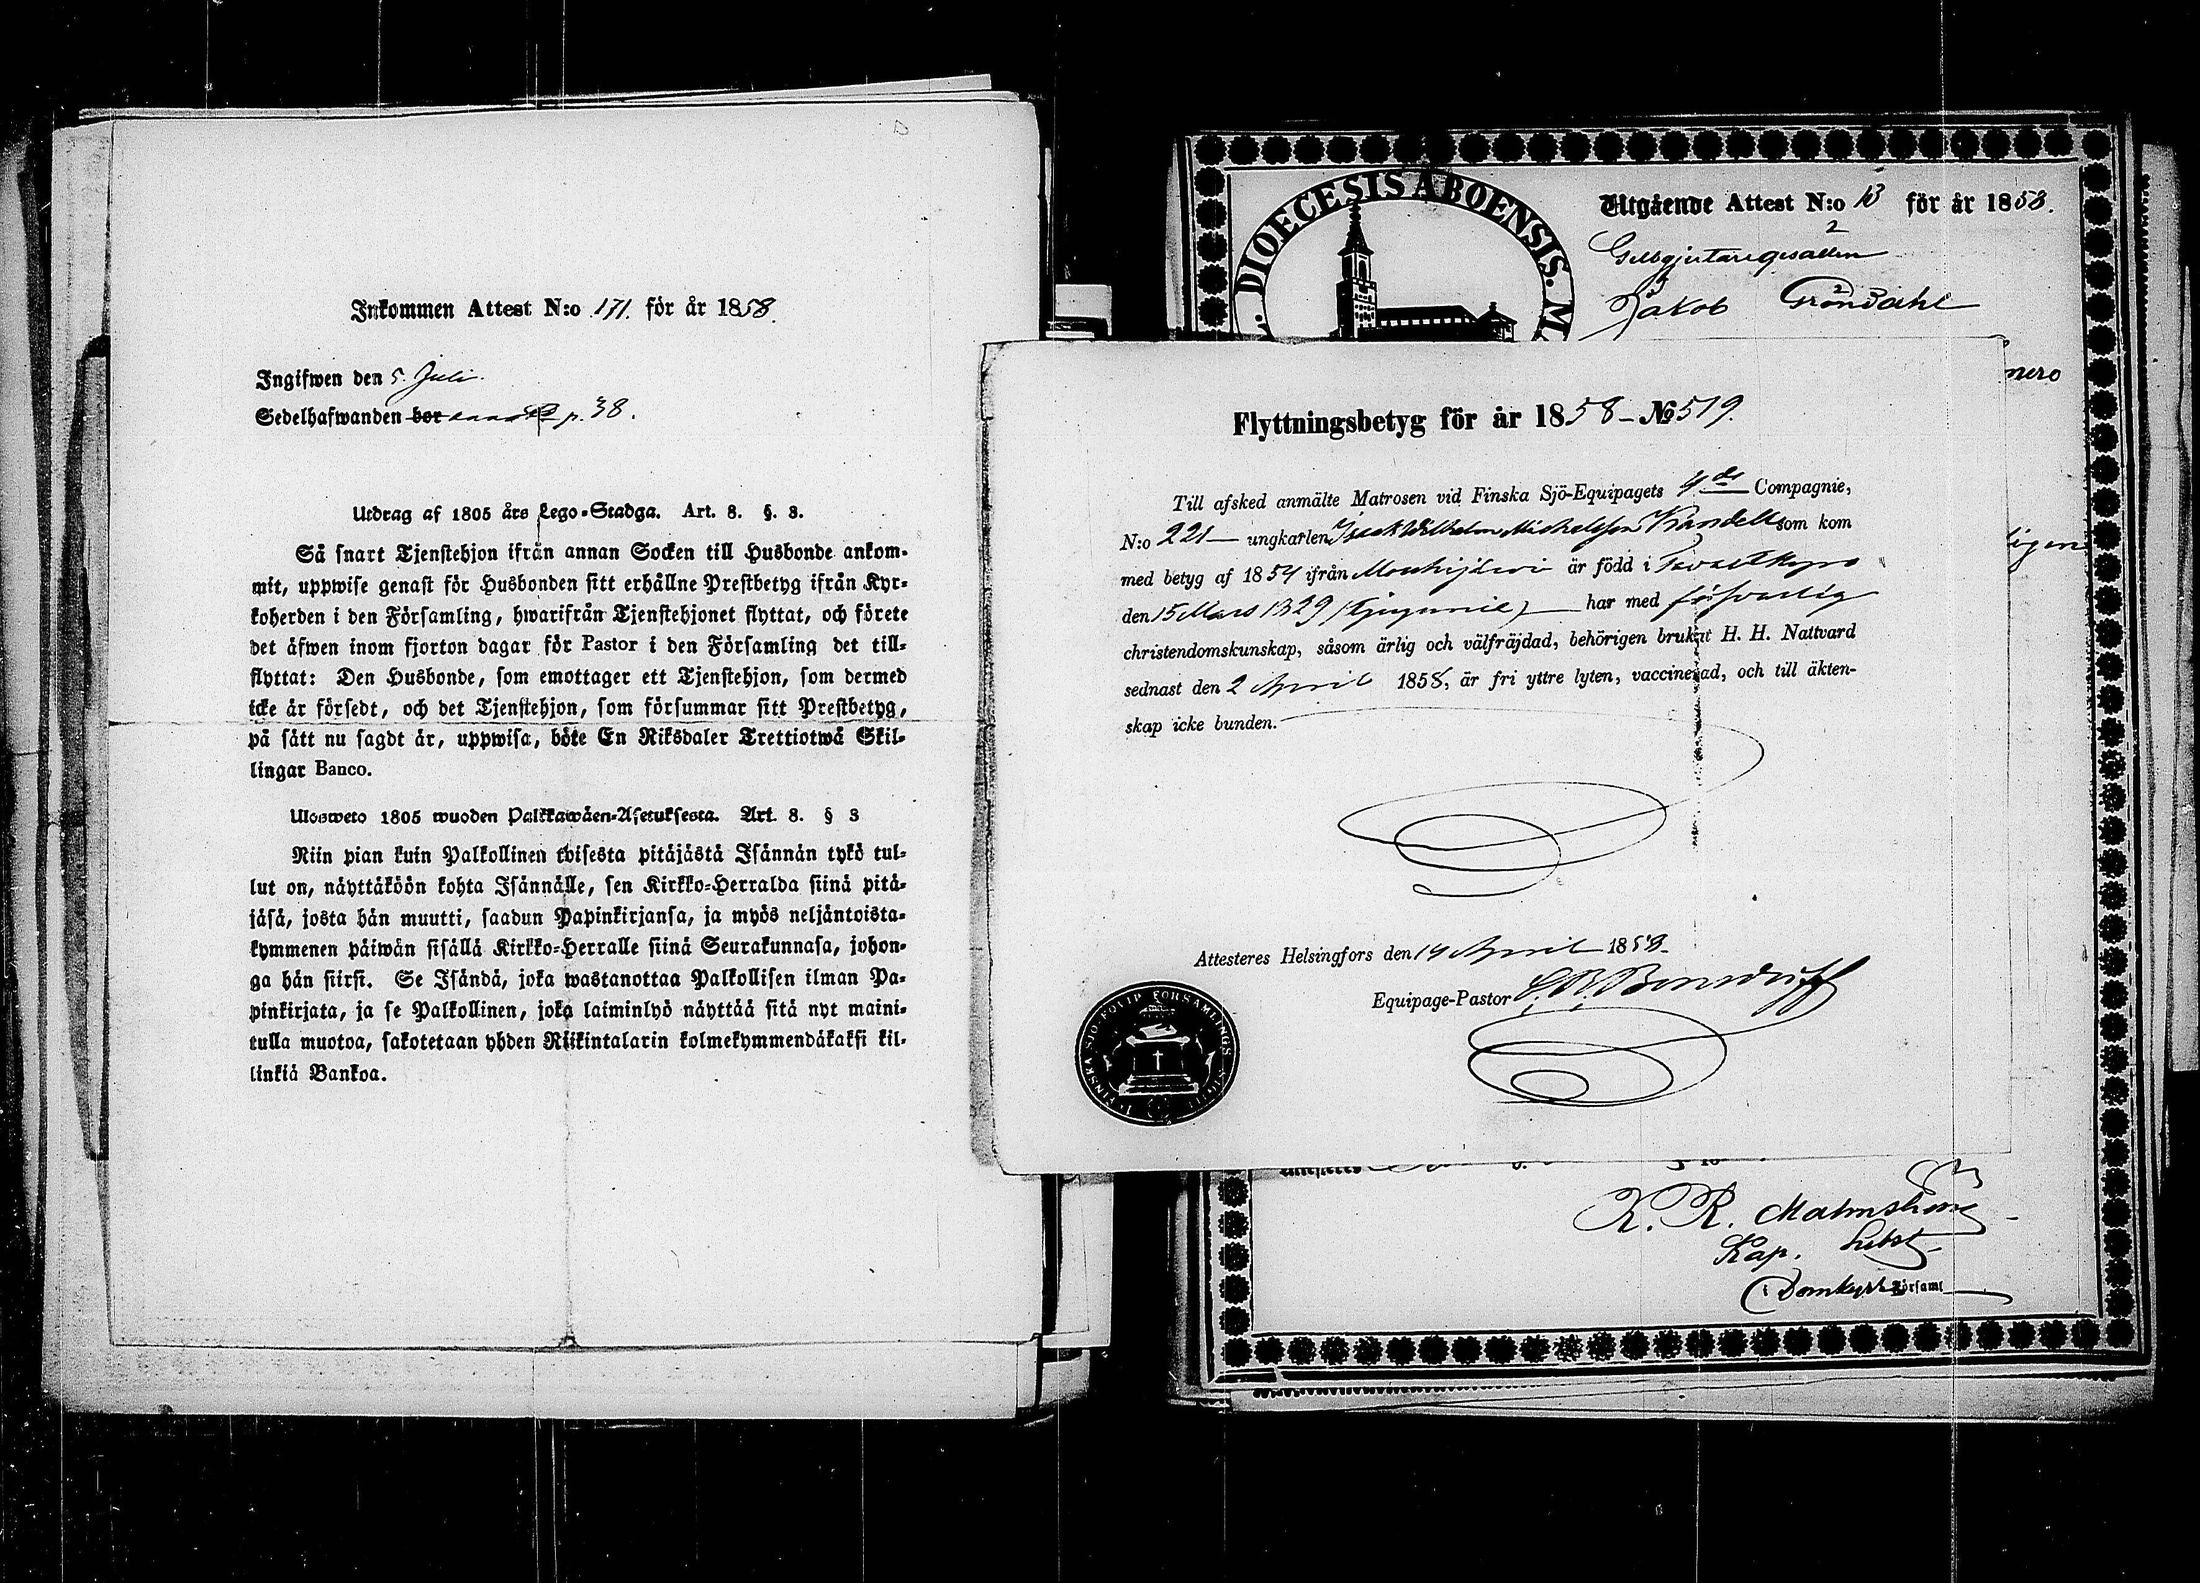 Inkommen Attest N:o 171. för år 1858.
Ingifwen den 5. Juli.
Sedelhafwanden bor p. 38.
Utdrag af 1805 års Lego-Stadga. Art. 8. §. 3.
Så snart Tjenstehjon ifrån annan Socken till Husbonde ankom-
mit, uppwise genast för Husbonden sitt erhållne Prestbetyg ifrån Kyr-
koherden i den Församling, hwarifrån Tjenstehjonet flyttat, och förete
det äfwen inom fjorton dagar för Pastor i den Församling det till-
flyttat: Den Husbonde, som emottager ett Tjenstehjon, som dermed
icke är försedt, och det Tjenstehjon, som försummar sitt Prestbetyg,
på sätt nu sagdt är, uppwisa, böte En Riksdaler Trettiotwå Skil-
lingar Banco.
Ulosweto 1805 wuoden Palkkawäen-Asetuksesta. Art. 8. § 3
Niin pian kuin Palkollinen toisesta pitäjästä Isännän tykö tul-
lut on, näyttäköön kohta Isännälle, sen Kirkko-Herralda siinä pitä-
jäsä, josta hän muutti, saadun Papinkirjansa, ja myös neljäntoista-
kymmenen päiwän sisällä Kirkko-Herralle siinä Seurakunnasa, johon-
ga hän siirsi. Se Isändä, joka wastanottaa Palkollisen ilman Pa-
pinkirjata, ja se Palkollinen, joka laiminlyö näyttää sitä nyt maini-
tulla muotoa, sakotetaan yhden Riikintalarin kolmekymmendäkaksi kil-
linkiä Bankoa.
DIOECESIS ABOENSIS. M.
Utgående Attest N:o 13 för år 1858.
Gelbgjutaregesällen
Jakob Gröndahl
Flyttningsbetyg för år 1858 - No 519.
Till afsked anmälte Matrosen vid Finska Sjö-Equipagets 4de Compagnie,
N:o 221 — ungkarlen Isak Wilhelm Michelsson Randell som kom
med betyg af 1854 ifrån Mouhijärvi är född i Tavastkyro
den 15 Mars 1829 — har med försvarlig
christendomskunskap, såsom ärlig och välfräjdad, behörigen brukat H. H. Nattvard
sednast den 2 April 1858, är fri yttre lyten, vaccinerad, och till äkten-
skap icke bunden.
Attesteres Helsingfors den 14 April 1858.
Equipage-Pastor
K. R. Malmström
Kap. Subst.
i Domkyrko Församl